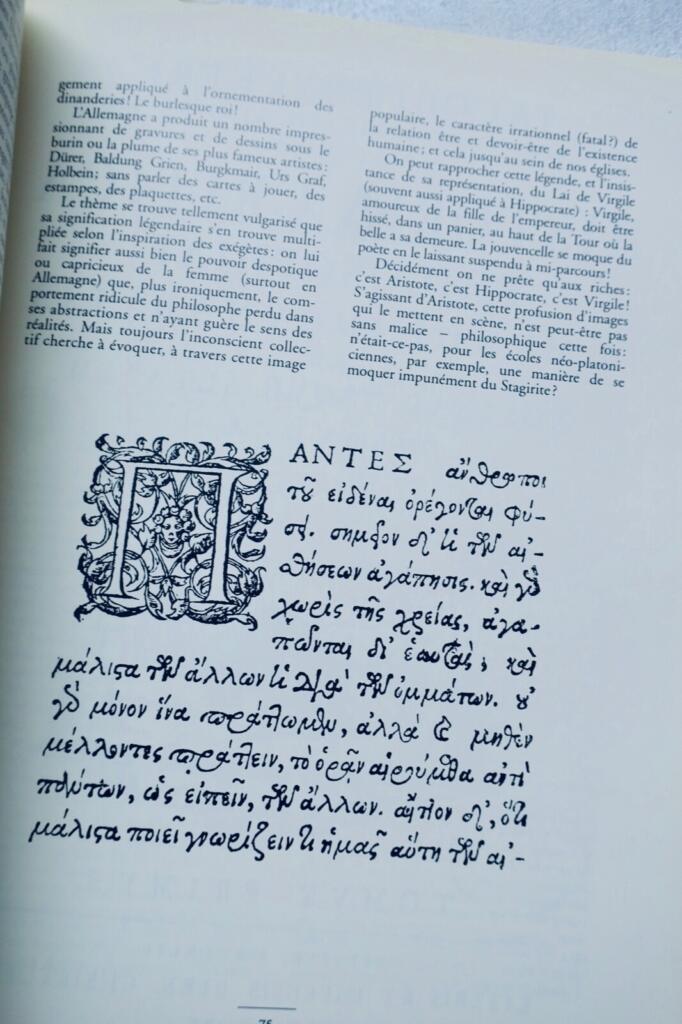 gement appliqué à l'ornementation des
dinanderies! Le burlesque roi!
L'Allemagne a produit un nombre impres-
sionnant de gravures et de dessins sous le
burin ou la plume de ses plus fameux artistes :
Dürer, Baldung Grien, Burgkmair, Urs Graf,
Holbein; sans parler des cartes à jouer, des
estampes, des plaquettes, etc.
Le thème se trouve tellement vulgarisé que
sa signification légendaire s'en trouve multi-
pliée selon l'inspiration des exégètes : on lui
fait signifier aussi bien le pouvoir despotique
ou capricieux de la femme (surtout en
Allemagne) que, plus ironiquement, le com-
portement ridicule du philosophe perdu dans
ses abstractions et n'ayant guère le sens des
réalités. Mais toujours l'inconscient collec-
tif cherche à évoquer, à travers cette image
populaire, le caractère irrationnel (fatal?) de
la relation être et devoir-être de l'existence
humaine; et cela jusqu'au sein de nos églises.
On peut rapprocher cette légende, et l'insis-
tance de sa représentation, du Lai de Virgile
(souvent aussi appliqué à Hippocrate) : Virgile,
amoureux de la fille de l'empereur, doit être
hissé, dans un panier, au haut de la Tour où la
belle a sa demeure. La jouvencelle se moque du
poète en le laissant suspendu à mi-parcours!
Décidément on ne prête qu'aux riches :
c'est Aristote, c'est Hippocrate, c'est Virgile!
S'agissant d'Aristote, cette profusion d'images
qui le mettent en scène, n'est peut-être pas
sans malice – philosophique cette fois :
n'était-ce-pas, pour les écoles néo-platoni-
ciennes, par exemple, une manière de se
moquer impunément du Stagirite?
ΠΑΝΤΕΣ ἄνθρωποι
τοῦ εἰδέναι ὀρέγονται φύ-
σει. σημεῖον δ' ἡ τῶν αἰ-
σθήσεων ἀγάπησις. καὶ γὰρ
χωρὶς τῆς χρείας, ἀγα-
πῶνται δι' ἑαυτὰς, καὶ
μάλιστα τῶν ἄλλων ἡ διὰ τῶν ὀμμάτων. οὐ
γὰρ μόνον ἵνα πράττωμεν, ἀλλὰ καὶ μηθὲν
μέλλοντες πράττειν, τὸ ὁρᾶν αἱρούμεθα ἀντὶ
πάντων, ὡς εἰπεῖν, τῶν ἄλλων. αἴτιον δ', ὅτι
μάλιστα ποιεῖ γνωρίζειν τι ἡμᾶς αὕτη τῶν αἰ-